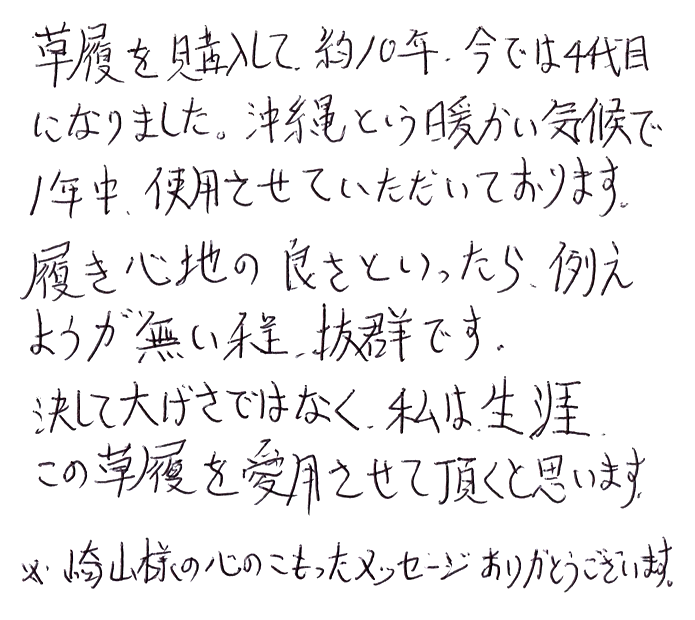 草履を購入して、約10年、今では4代目
になりました。沖縄という暖かい気候で
1年中、使用させていただいております。
履き心地の良さといったら、例え
ようが無い程、抜群です。
決して大げさではなく、私は生涯、
この草履を愛用させて頂くと思います。
※崎山様の心のこもったメッセージありがとうございます。